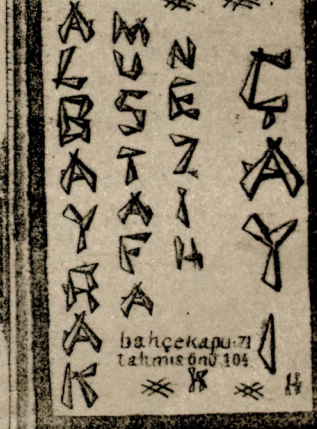 ALBAYRAK
MUSTAFA
NEZİH
ÇAYI
bahçekapu·71
tahmisönü 104